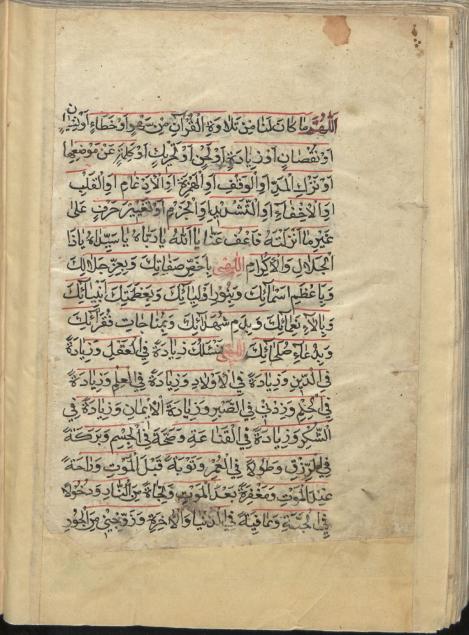 اَللّٰهُمَّ مَا كَانَ لَنَا مِنْ تِلَاوَةِ الْقُرْآنِ مِنْ سَهْوٍ اَوْ خَطَاءٍ اَوْ نِسْيَانٍ
اَوْ نُقْصَانٍ اَوْ زِيَادَةٍ اَوْ لَحْنٍ اَوْ تَحْرِيكٍ اَوْ كَلِمَةٍ عَنْ مَوْضِعِهَا
اَوْ تَرْكِ الْمَدِّ اَوِ الْوَقْفِ اَوِ الْهَمْزَةِ اَوِ الْاِدْغَامِ اَوِ الْقَلْبِ
اَوِ الْاِخْفَاءِ اَوِ التَّشْدِيدِ اَوِ الْجَزْمِ اَوْ تَغْيِيرِ حَرْفٍ عَلَى
غَيْرِ مَا اَنْزَلْتَهُ فَاعْفُ عَنَّا يَا اَللّٰهُ يَا رَبَّاهُ يَا سَيِّدَاهُ يَا ذَا
الْجَلَالِ وَالْاِكْرَامِ اِلٰهِى بِاَخَصِّ صِفَاتِكَ وَبِعِزِّ جَلَالِكَ
وَيَا عَظِيمَ اَسْمَائِكَ وَبِنُورِ اَوْلِيَائِكَ وَبِعَظَمَتِكَ اَنْبِيَائِكَ
وَبِآلَاءِ نَعْمَائِكَ وَبِدَمِ شُهَدَائِكَ وَبِمُنَاجَاتِ فُقَرَائِكَ
وَبِدُعَاءِ صُلَحَائِكَ اِلٰهِى نَسْئَلُكَ زِيَادَةً فِى الْعَقْلِ وَزِيَادَةً
فِى الدِّينِ وَزِيَادَةً فِى الْاَوْلَادِ وَزِيَادَةً فِى الْعِلْمِ وَزِيَادَةً
فِى الْحِلْمِ وَزِدْنِى فِى الصَّبْرِ وَزِيَادَةً الْاِيمَانِ وَزِيَادَةً فِى
الشُّكْرِ وَزِيَادَةً فِى الْقَنَاعَةِ وَصِحَّةً فِى الْجِسْمِ وَبَرَكَةً
فِى الرِّزْقِ وَطُولًا فِى الْعُمْرِ وَتَوْبَةً قَبْلَ الْمَوْتِ وَرَاحَةً
عِنْدَ الْمَوْتِ وَمَغْفِرَةً بَعْدَ الْمَوْتِ وَنَجَاةً مِنَ النَّارِ وَدُخُولًا
فِى الْجَنَّةِ وَعَافِيَةً فِى الدُّنْيَا وَالْاٰخِرَةِ وَزَوِّجْنِى مِنَ الْحُورِ